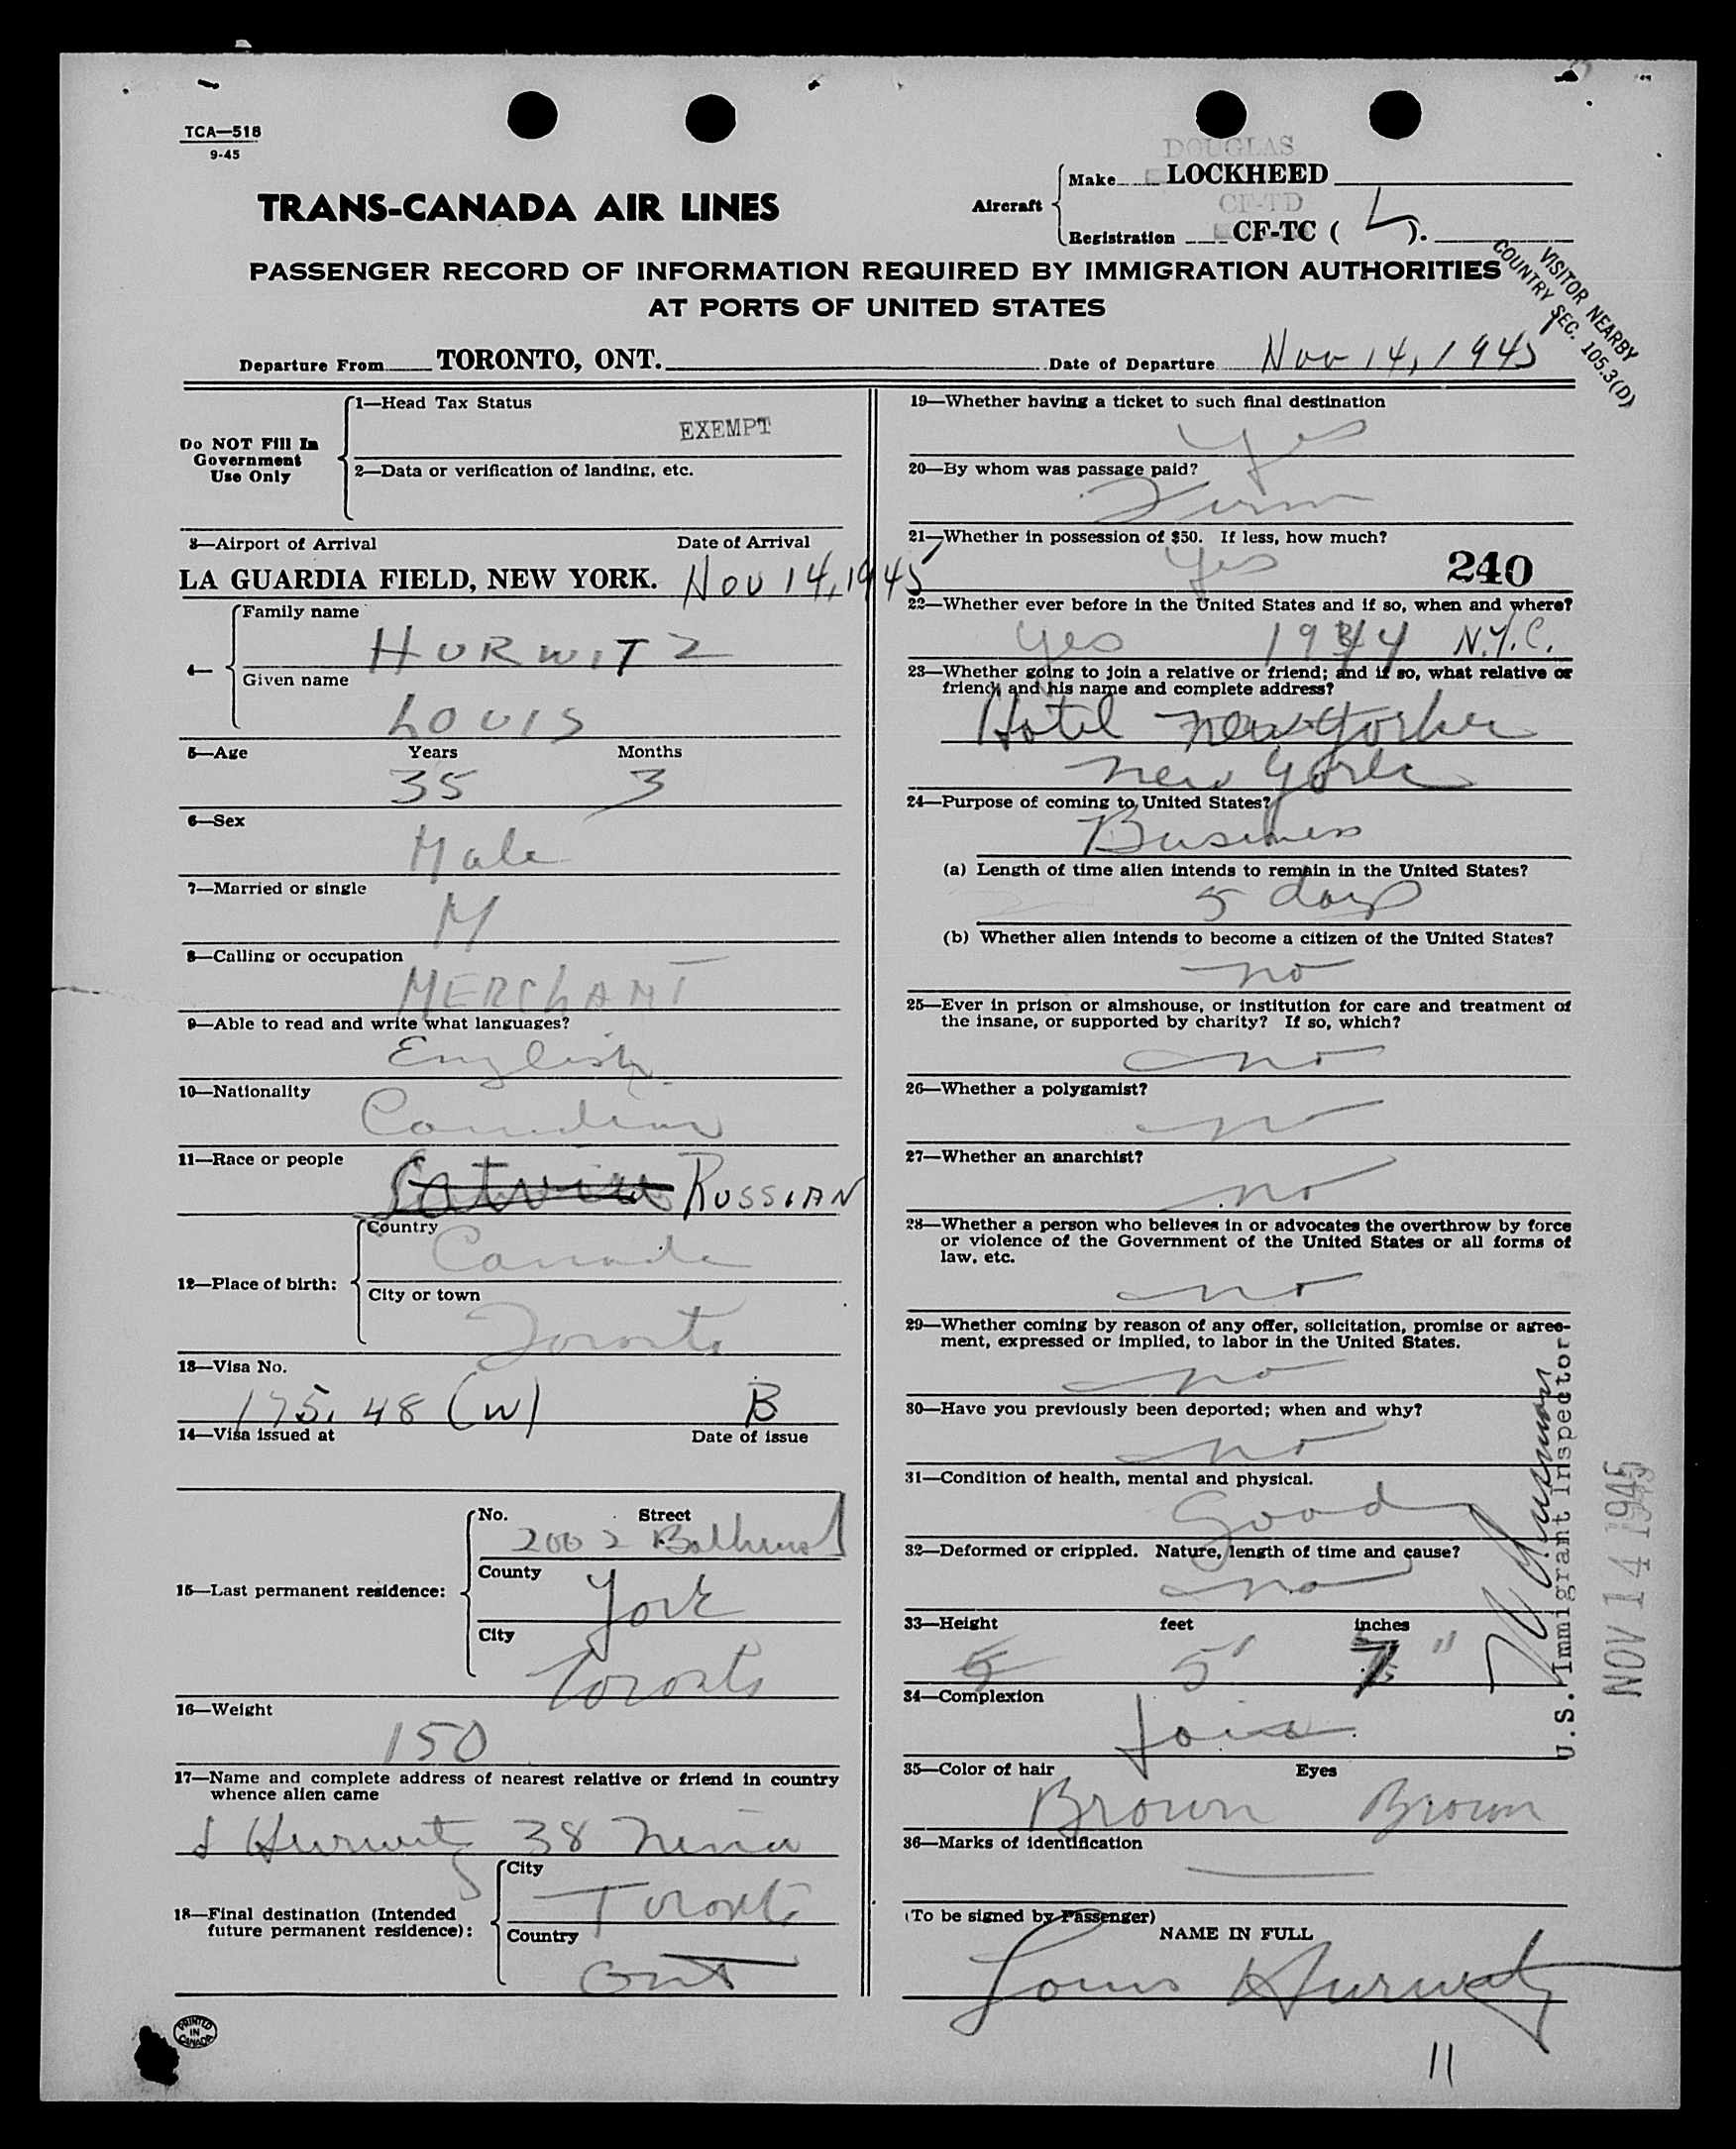 TCA—518
9-45
TRANS-CANADA AIR LINES
DOUGLAS
Aircraft
Make LOCKHEED
CF-TD
Registration CF-TC ( L ).
PASSENGER RECORD OF INFORMATION REQUIRED BY IMMIGRATION AUTHORITIES
AT PORTS OF UNITED STATES
VISITOR NEARBY
COUNTRY SEC. 105.3(D)
Departure From TORONTO, ONT. Date of Departure Nov 14, 1945
Do NOT Fill In
Government
Use Only
1—Head Tax Status
EXEMPT
2—Data or verification of landing, etc.
3—Airport of Arrival Date of Arrival
LA GUARDIA FIELD, NEW YORK. Nov 14, 1945
4—
Family name
HURWITZ
Given name
LOUIS
5—Age Years Months
35 3
6—Sex
Male
7—Married or single
M
8—Calling or occupation
MERCHANT
9—Able to read and write what languages?
English
10—Nationality
Canadian
11—Race or people
RUSSIAN
12—Place of birth:
Country
Canada
City or town
Toronto
13—Visa No.
175.48 (W) B
14—Visa issued at Date of issue
15—Last permanent residence:
No. Street
2002 Bathurst
County
York
City
Toronto
16—Weight
150
17—Name and complete address of nearest relative or friend in country
whence alien came
Hurwitz 38 Nina
18—Final destination (Intended
future permanent residence):
City
Toronto
Country
Ont
PRINTED
IN
CANADA
19—Whether having a ticket to such final destination
Yes
20—By whom was passage paid?
Firm
21—Whether in possession of $50. If less, how much?
Yes 240
22—Whether ever before in the United States and if so, when and where?
Yes 1944 N.Y.C.
23—Whether going to join a relative or friend; and if so, what relative or
friend and his name and complete address?
Hotel New Yorker
New York
24—Purpose of coming to United States?
Business
(a) Length of time alien intends to remain in the United States?
5 days
(b) Whether alien intends to become a citizen of the United States?
no
25—Ever in prison or almshouse, or institution for care and treatment of
the insane, or supported by charity? If so, which?
no
26—Whether a polygamist?
no
27—Whether an anarchist?
no
28—Whether a person who believes in or advocates the overthrow by force
or violence of the Government of the United States or all forms of
law, etc.
no
29—Whether coming by reason of any offer, solicitation, promise or agree-
ment, expressed or implied, to labor in the United States.
no
30—Have you previously been deported; when and why?
no
31—Condition of health, mental and physical.
Good
32—Deformed or crippled. Nature, length of time and cause?
no
33—Height feet inches
5 5' 7"
34—Complexion
fair
35—Color of hair Eyes
Brown Brown
36—Marks of identification
—
(To be signed by Passenger)
NAME IN FULL
Louis Hurwitz
U.S. Immigrant Inspector
NOV 14 1945
11